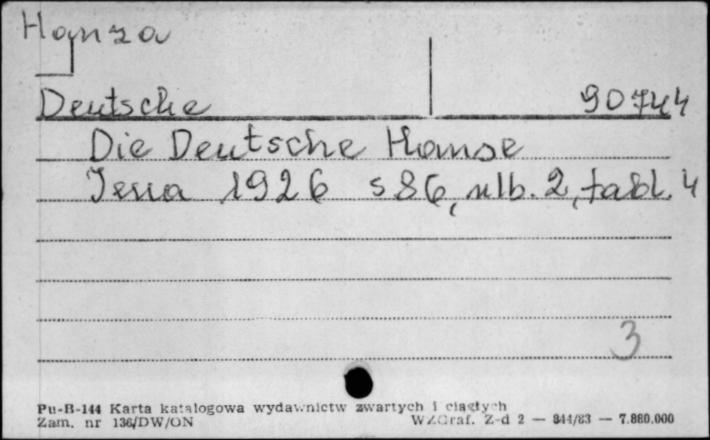 Hanza
Deutsche 90744
Die Deutsche Hanse
Jena 1926 s 86, nlb. 2, tabl. 4
3
Pu-B-144 Karta katalogowa wydawnictw zwartych i ciągłych
Zam. nr 136/DW/ON WZGraf. Z-d 2 — 344/83 — 7.880.000